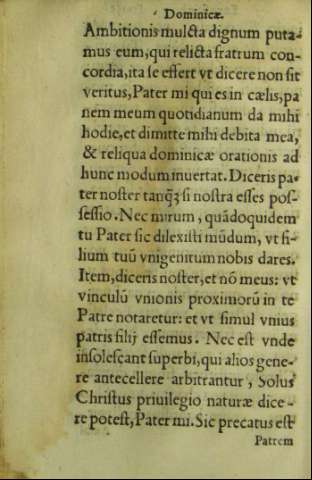 Dominicæ.
Ambitionis mulcta dignum puta-
mus eum, qui relicta fratrum con-
cordia, ita se effert vt dicere non sit
veritus, Pater mi qui es in cælis, pa
nem meum quotidianum da mihi
hodie, et dimitte mihi debita mea,
& reliqua dominicæ orationis ad
hunc modum inuertat. Diceris pa-
ter noster tanq̃ꝫ si nostra esses pos-
sessio. Nec mirum, quãdoquidem
tu Pater sic dilexisti mũdum, vt fi-
lium tuũ vnigenitum nobis dares.
Item, diceris noster, et nõ meus: vt
vinculũ vnionis proximorũ in te
Patre notaretur: et vt simul vnius
patris filij essemus. Nec est vnde
insolescant superbi, qui alios gene-
re antecellere arbitrantur, Solus
Christus priuilegio naturæ dice-
re potest, Pater mi. Sic precatus est
Patrem